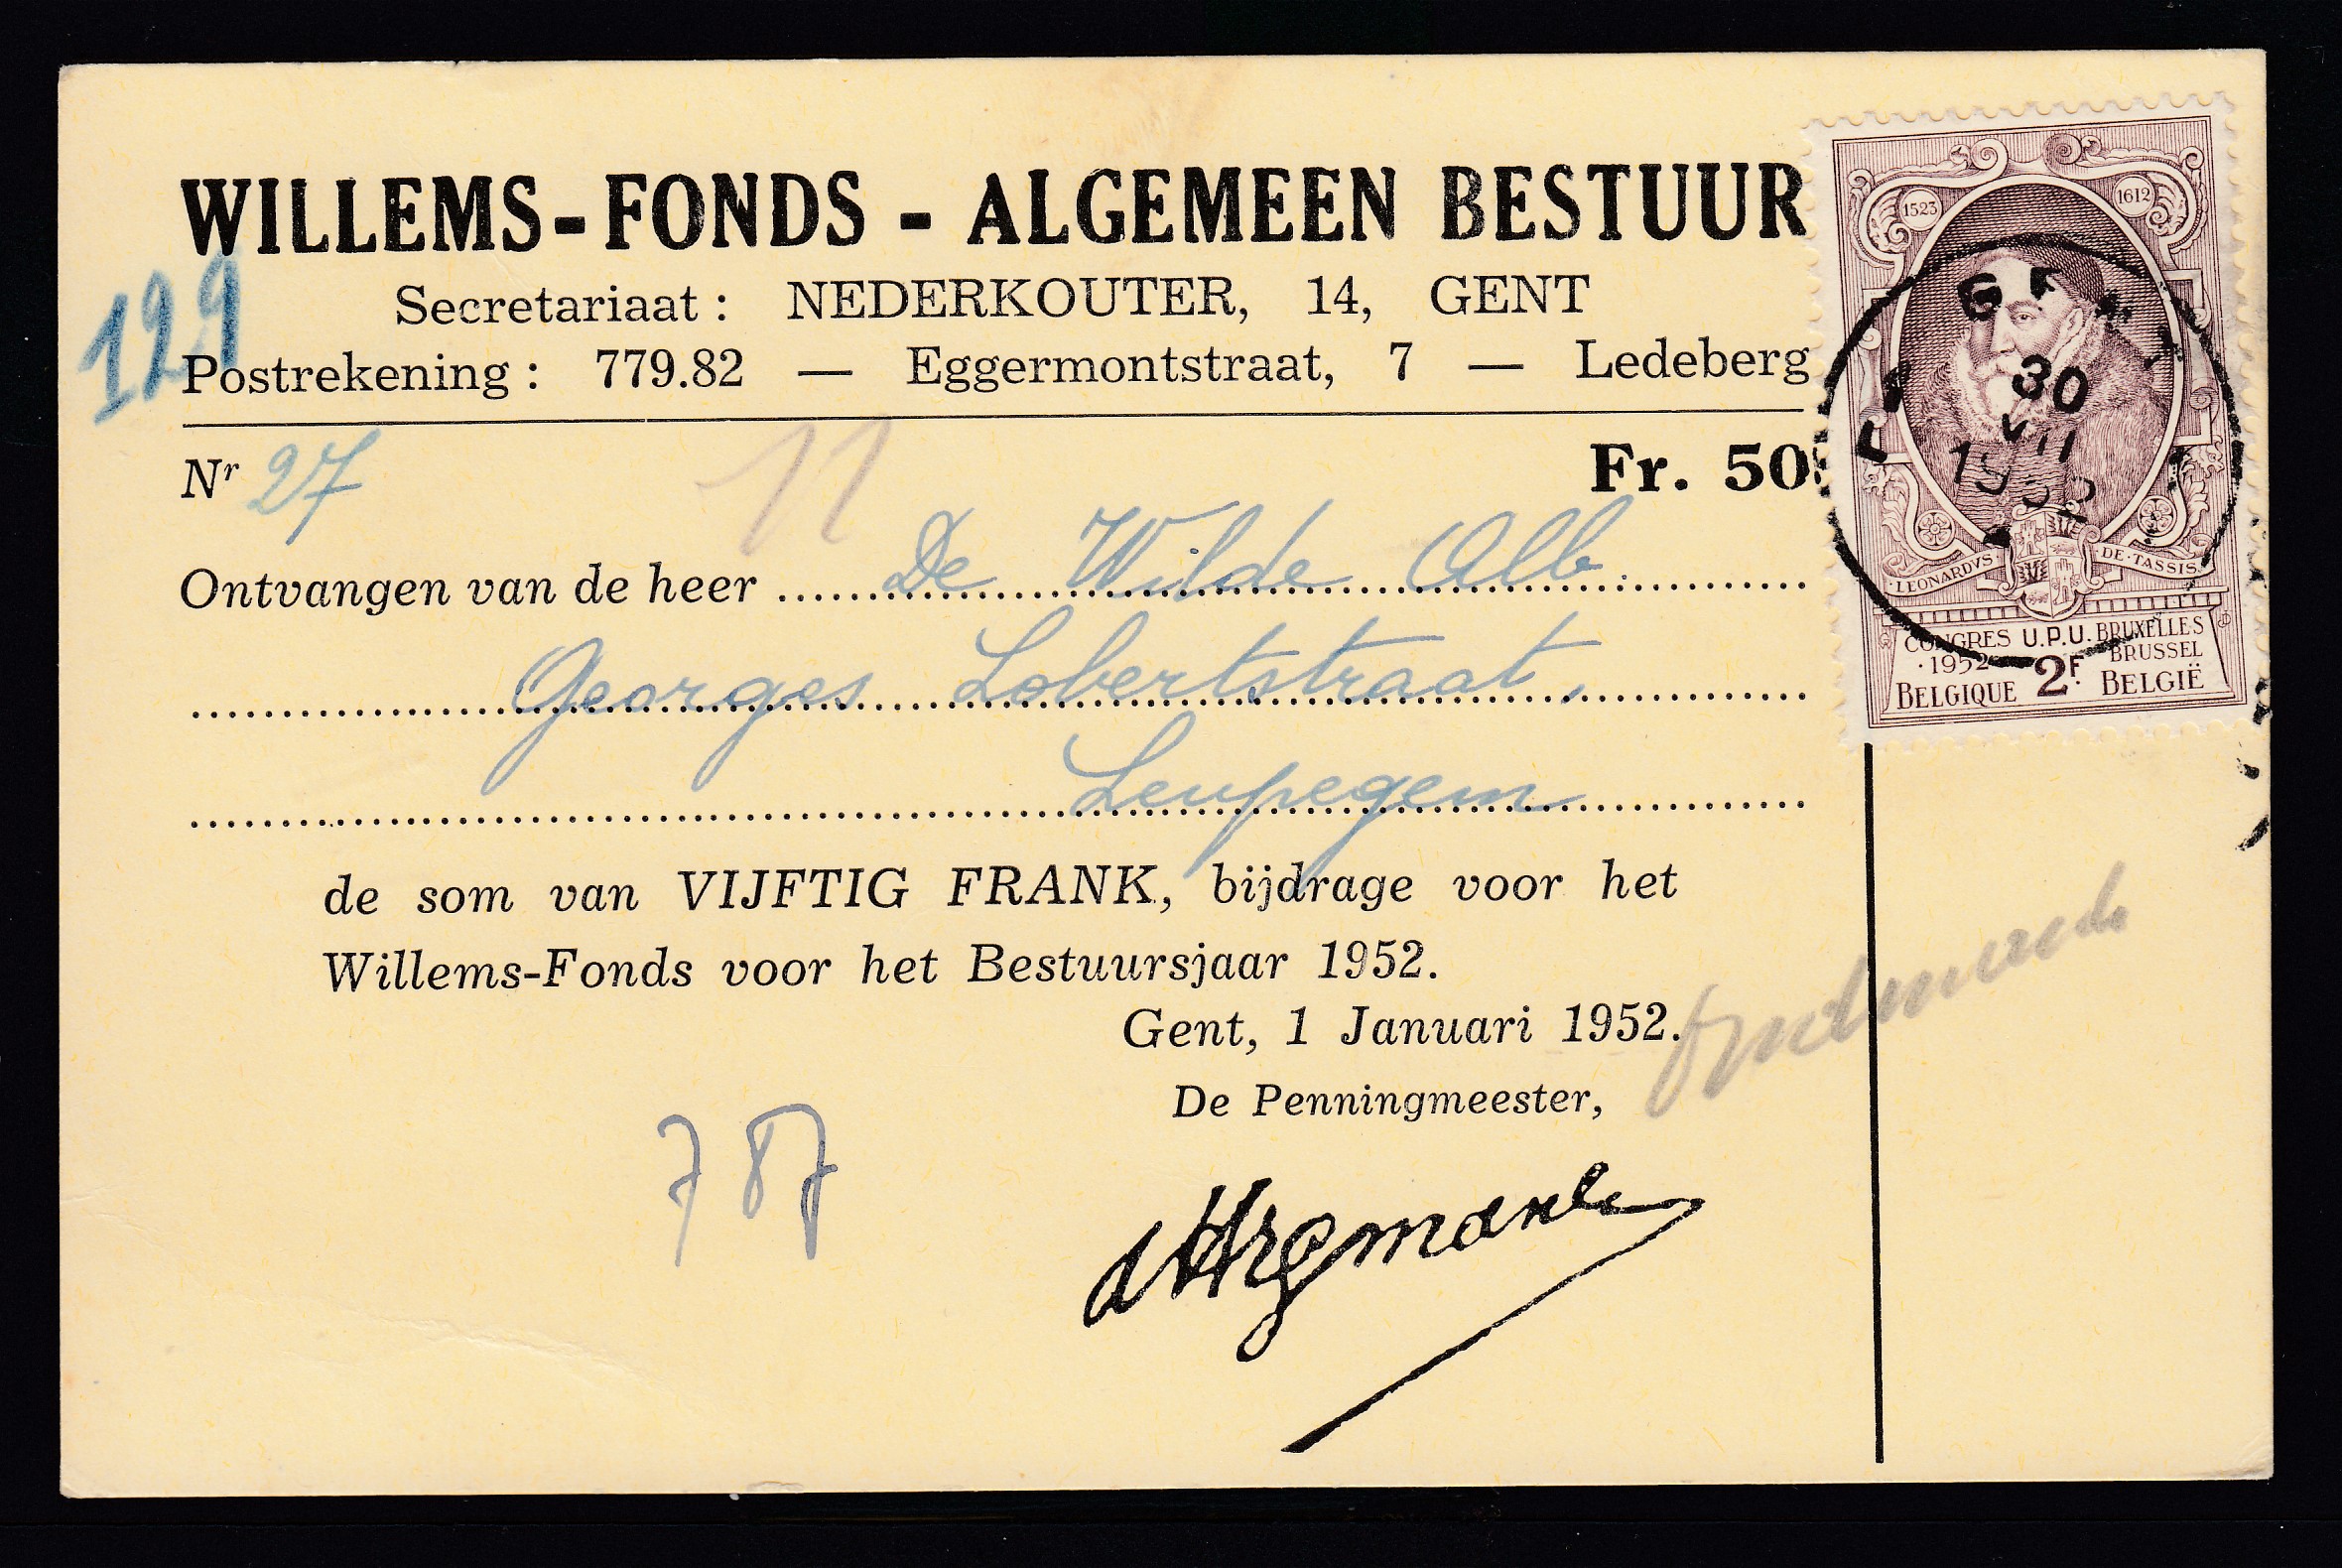 WILLEMS-FONDS - ALGEMEEN BESTUUR
Secretariaat : NEDERKOUTER, 14, GENT
129
Postrekening : 779.82 — Eggermontstraat, 7 — Ledeberg
Nr 27
11
Fr. 50
Ontvangen van de heer De Wilde Alb.
Georges Lobertstraat,
Leupegem
de som van VIJFTIG FRANK, bijdrage voor het
Willems-Fonds voor het Bestuursjaar 1952.
Gent, 1 Januari 1952.
De Penningmeester,
787
1523
1612
GENT
30
VII
1952
LEONARDVS DE·TASSIS
CONGRES U.P.U. BRUXELLES
·1952 BRUSSEL
BELGIQUE 2F. BELGIË